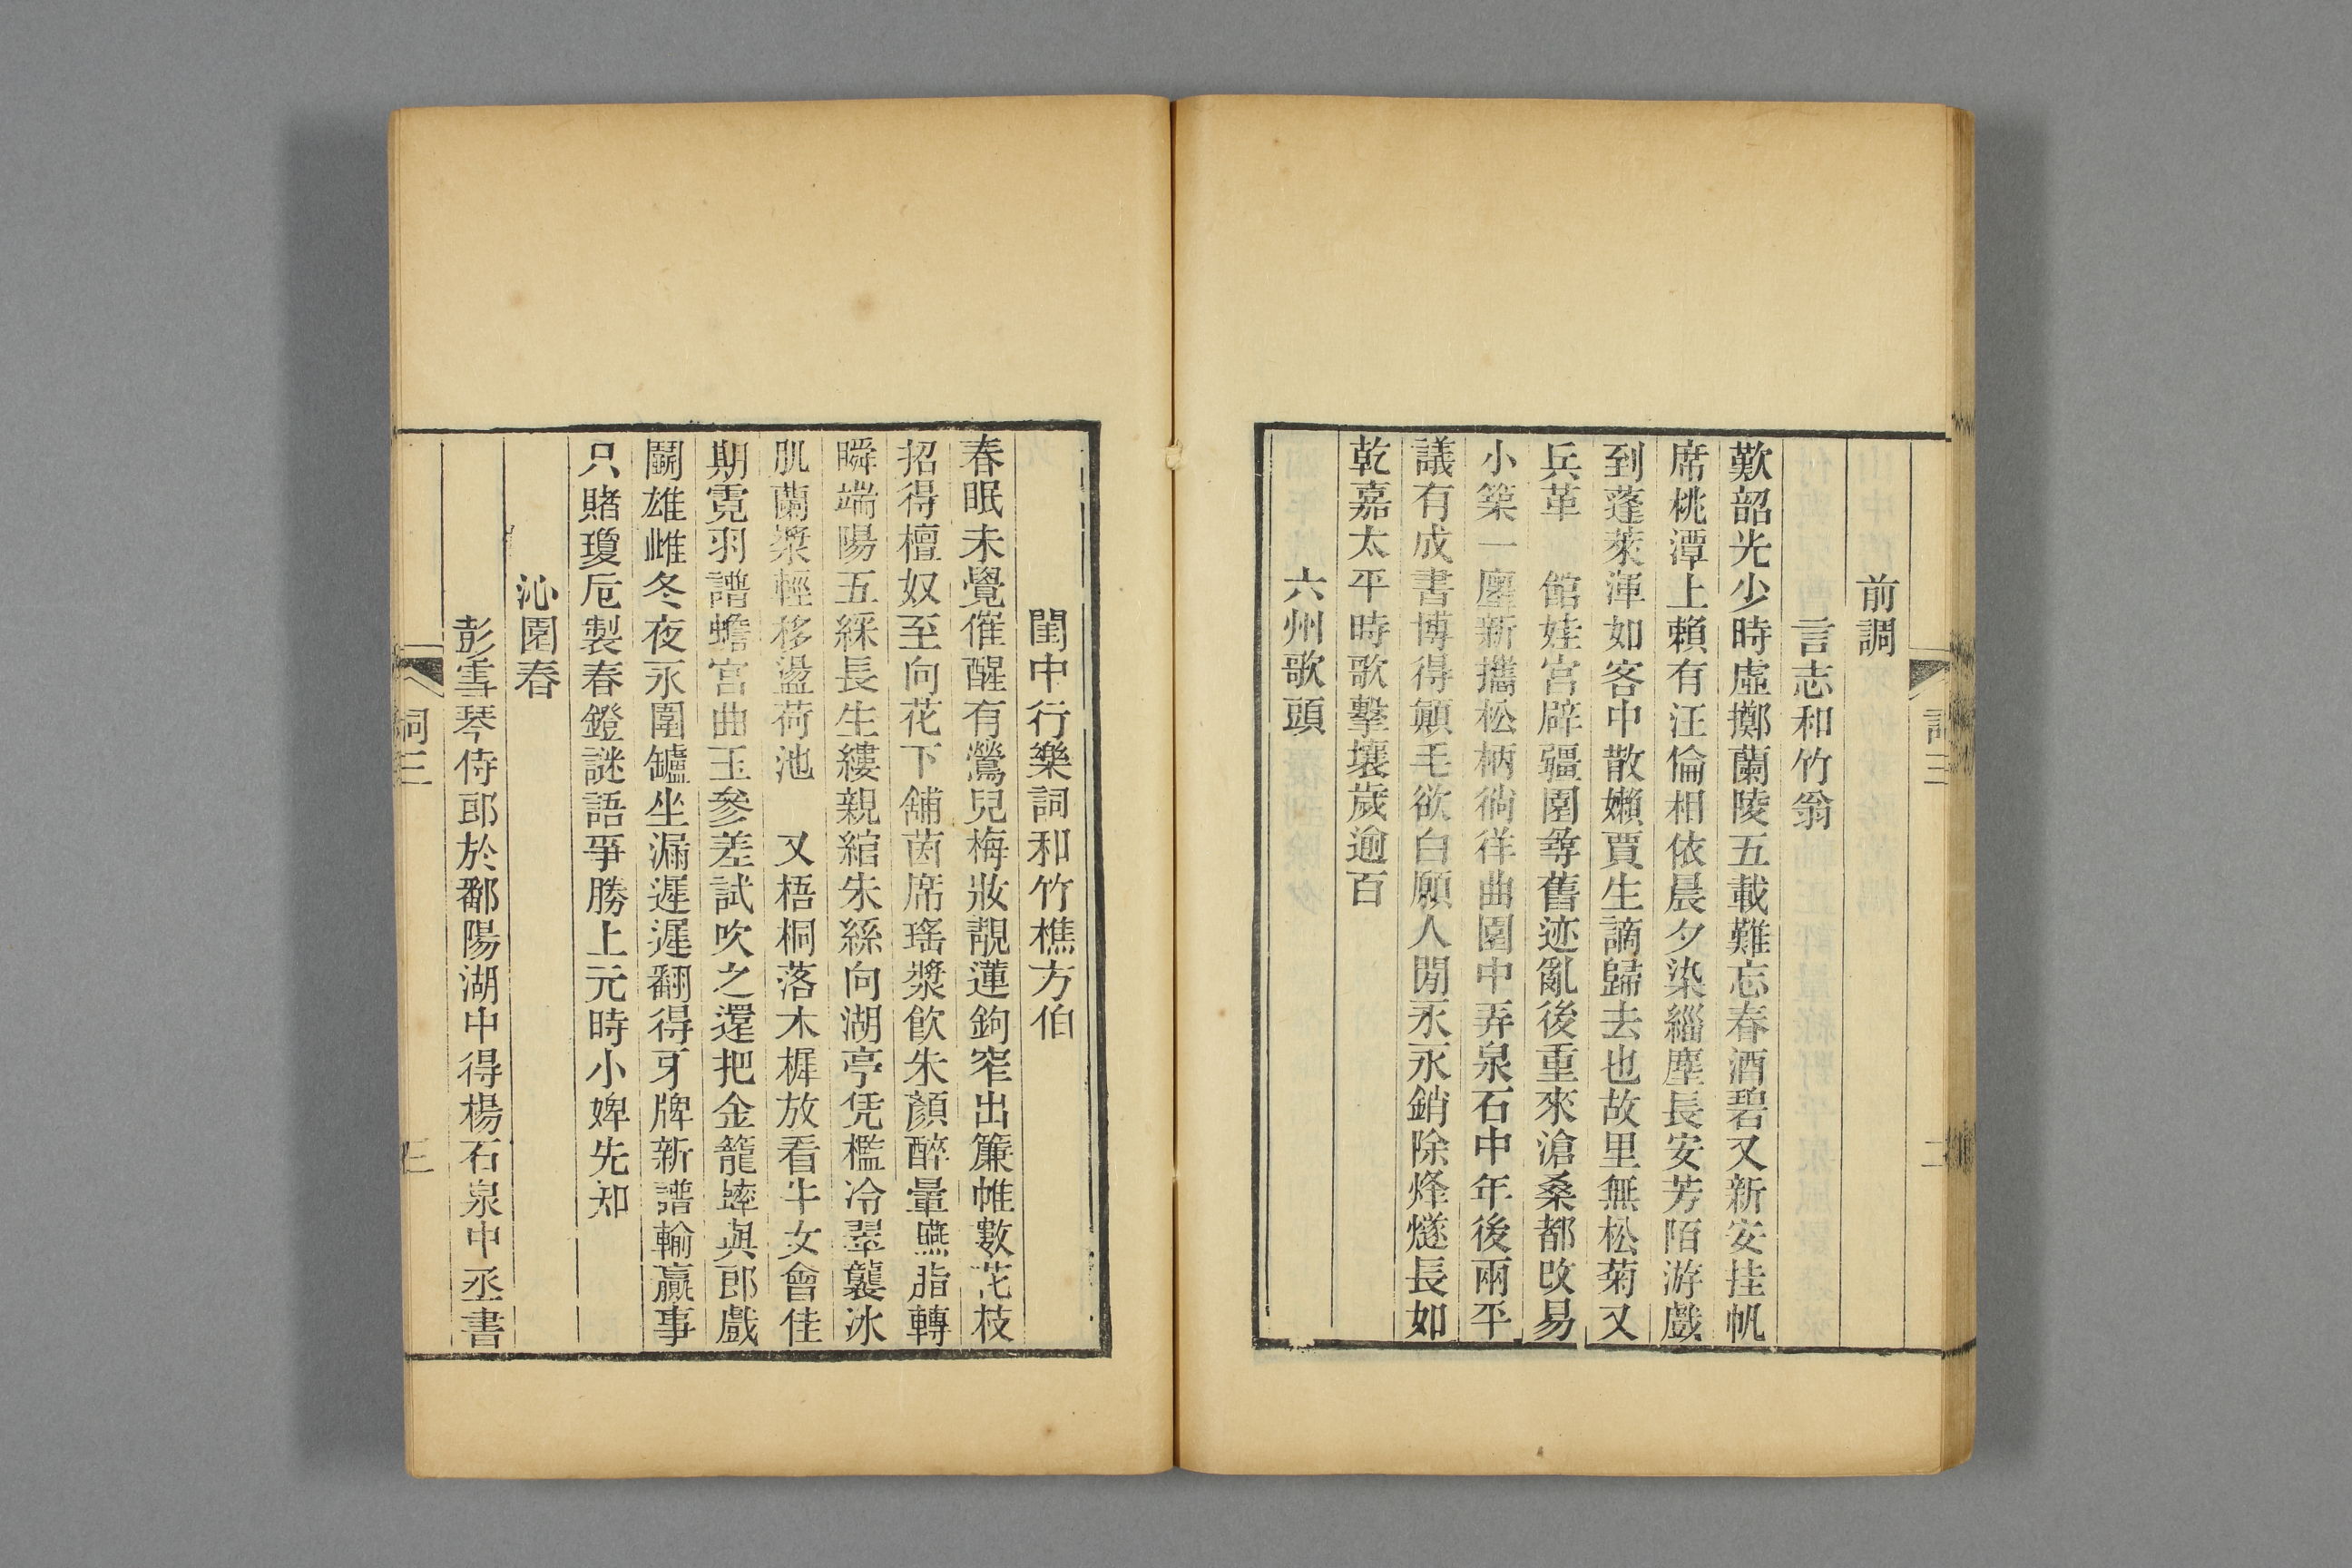 詞三
二
前調
言志和竹翁
歎韶光少時虛擲蘭陵五載難忘春酒碧又新安挂帆
席桃潭上賴有汪倫相依晨夕染緇塵長安芳陌游戲
到蓬萊渾如客中散嬾賈生謫歸去也故里無松菊又
兵革　館娃宮辟疆園尋舊迹亂後重來滄桑都改易
小築一廛新攜松柄徜徉曲園中弄泉石中年後兩平
議有成書博得顚毛欲白願人閒永永銷除烽燧長如
乾嘉太平時歌擊壤歲逾百
六州歌頭
閨中行樂詞和竹樵方伯
春眠未覺催醒有鶯兒梅妝靚蓮鉤窄出簾帷數花枝
招得檀奴至向花下鋪茵席瑤漿飮朱顏醉暈燕脂轉
瞬端陽五綵長生縷親綰朱絲向湖亭凭檻冷翠襲冰
肌蘭槳輕移盪荷池　又梧桐落木樨放看牛女會佳
期霓羽譜蟾宮曲玉參差試吹之還把金籠蟀與郎戲
鬭雄雌冬夜永圍罏坐漏遲遲翻得牙牌新譜輸贏事
只賭瓊卮製春鐙謎語爭勝上元時小婢先知
沁園春
彭雪琴侍郎於鄱陽湖中得楊石泉中丞書
詞三
三